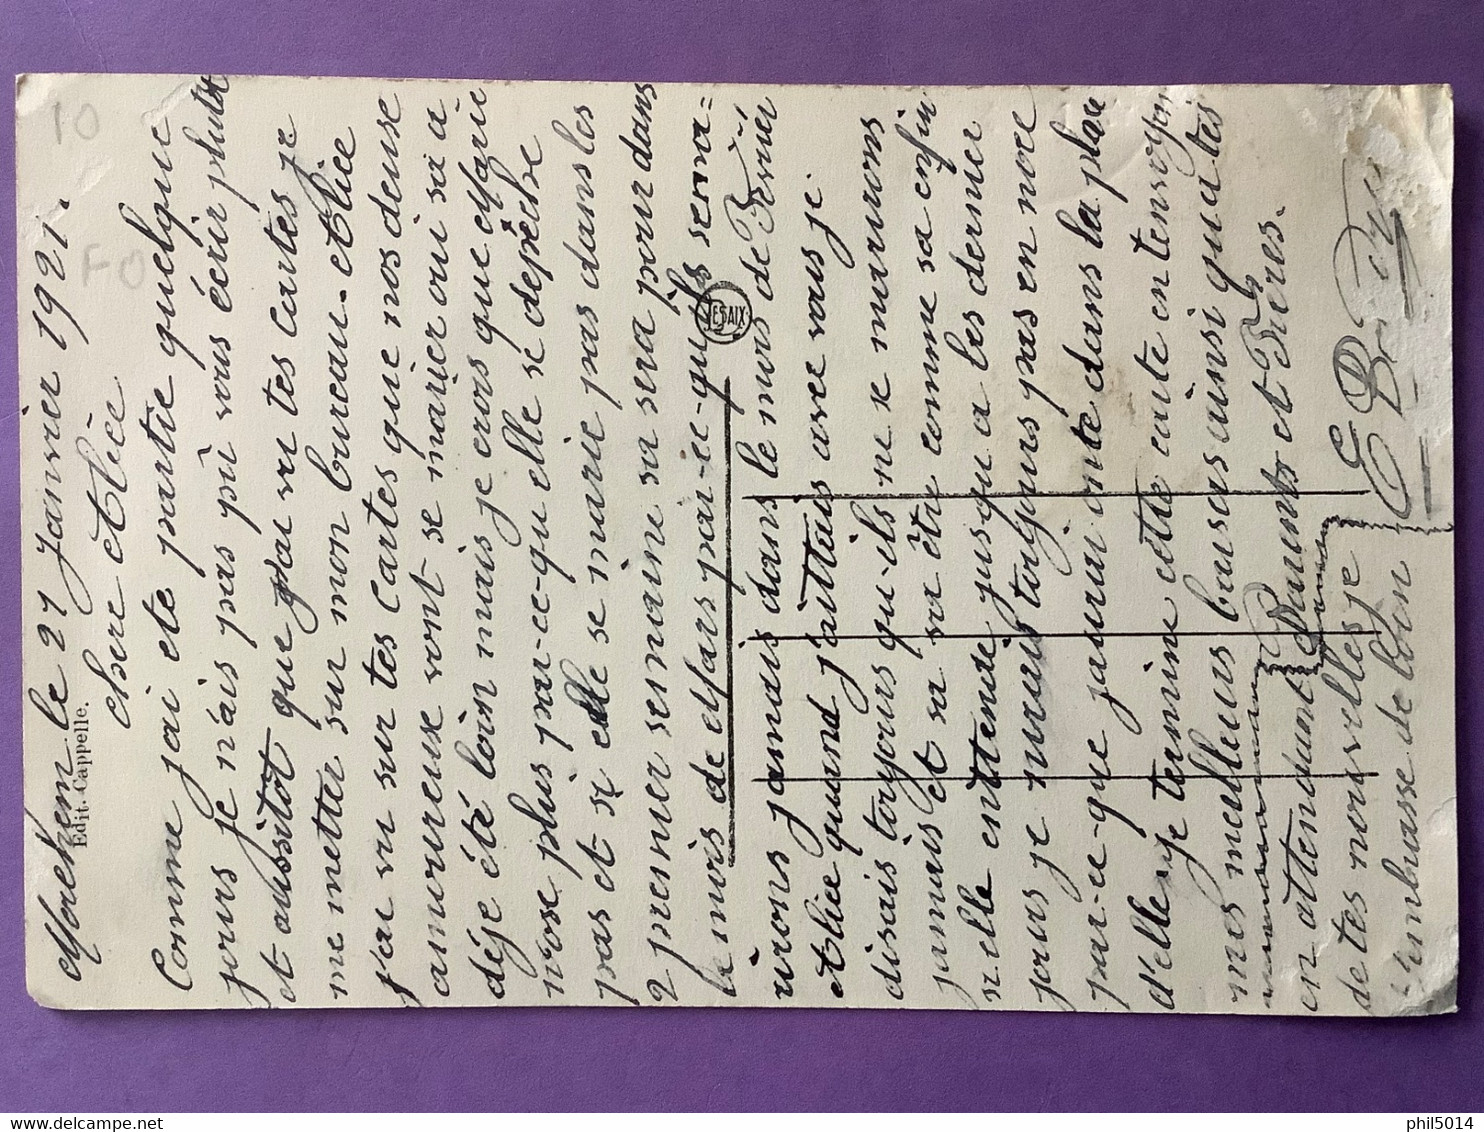 Morehem le 27 Janvier 1921.
Edit. Cappelle.
10
FO
chere Alice
Comme jai ete partie quelque
jours je n'ais pas pù vous écrir plutot
et aussitot que j'ai vu tes cartes je
me metter sur mon bureau. Alice
j'ai vu sur tes cartes que nos deuse
amoureuse vont se marier oui sa a
déje été loin mais je crois que Marie
n'ose plus par-ce-qu elle se depèche
pas et si elle se marie pas dans les
2 premier semaine sa sera pour dans
le mois de Mars par-ce-qu'ils serra=
DESAIX
irons jamais dans le mois de Fevrier
Alice quand j'aittais avec vous je
disais toujours qu-ils ne se marirons
jamais et sa va être comme sa enfin
n elle entende jusqu a les dernier
jours je marie toujours pas en noce
par-ce-que jaurai onte dans la place
d'elle je termine cette carte en tenvoyan
mes meilleurs baisers ainsi qua tes
Parents et Frères.
en attendant
de tes nouvelles je
t'embrasse de loin